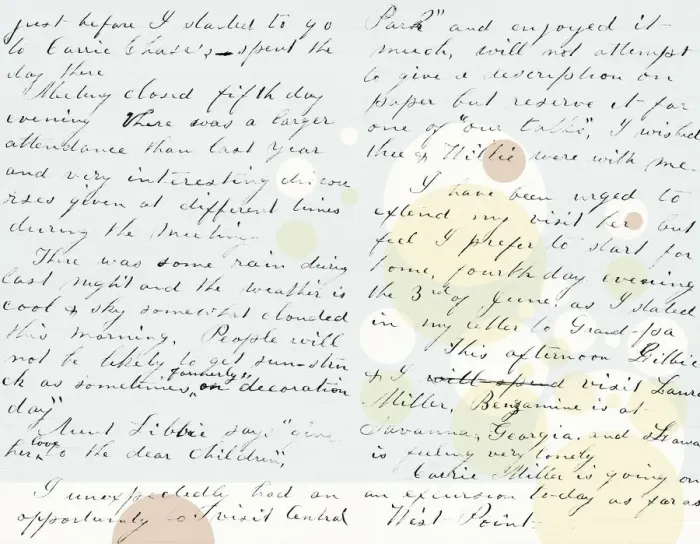 just before I started to go
to Carrie Chase's, - spent the
day there
Meeting closed fifth day
evening There was a larger
attendance than last year
and very interesting discou
rses given at different times
during the meeting.
There was some rain during
last night and the weather is
cool & sky somewhat clouded
this morning. People will
not be likely to get sun-stru
ck as sometimes, formerly, on "decoration
day"
Aunt Libbie says "give
her love to the dear Children",
I unexpectedly had an
opportunity to visit Central
Park" and enjoyed it
much, will not attempt
to give a description on
paper but reserve it for
one of "our talks", I wished
thee & Willie were with me.
I have been urged to
extend my visit her but
feel I prefer to start for
home, fourth day evening
the 3rd of June, as I stated
in my letter to Grand-pa
This afternoon Libbie
& I will spend visit Laura
Miller, Benjamine is at
Savanna, Georgia, and Laura
is feeling very lonely
Carrie Miller is going on
an excursion to-day as far as
West-Point-